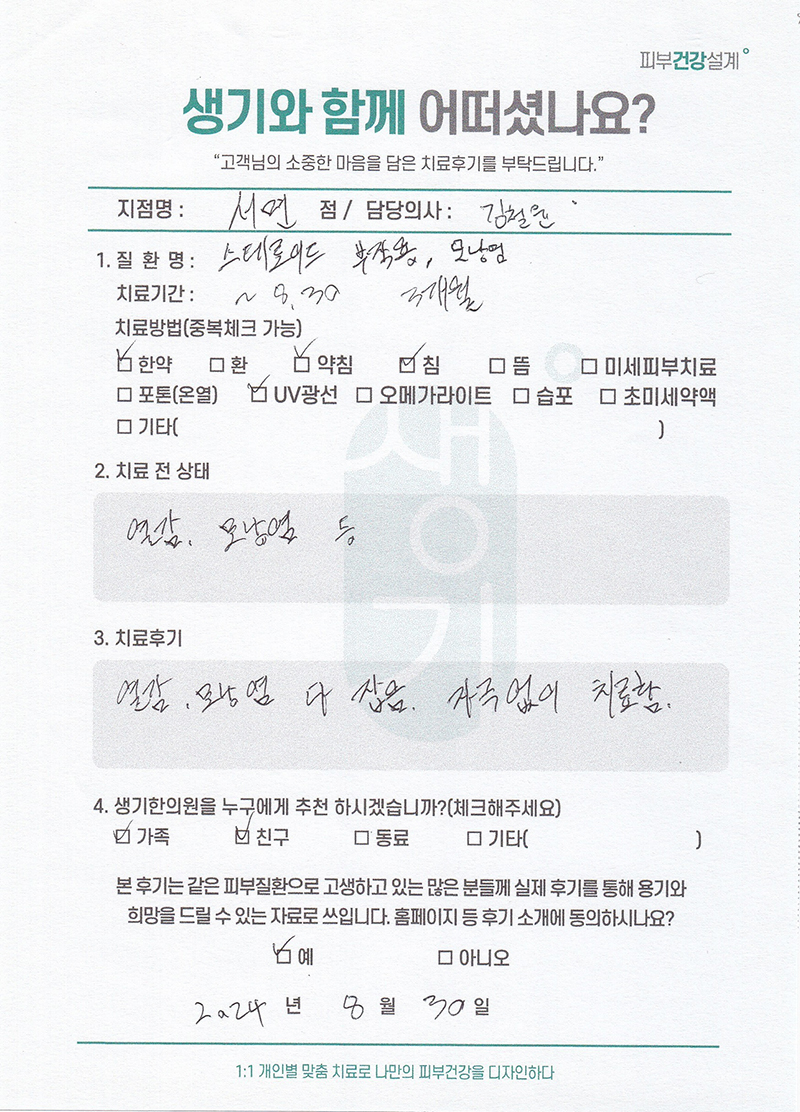 피부건강설계
생기와 함께 어떠셨나요?
“고객님의 소중한 마음을 담은 치료후기를 부탁드립니다.”
지점명 : 서면 점 / 담당의사 : 김철윤
1. 질 환 명 : 스테로이드 부작용, 모낭염
치료기간 : ~ 8.30 3개월
치료방법(중복체크 가능)
☑ 한약 □ 환 ☑ 약침 ☑ 침 □ 뜸 □ 미세피부치료
□ 포톤(온열) ☑ UV광선 □ 오메가라이트 □ 습포 □ 초미세약액
□ 기타( )
2. 치료 전 상태
열감. 모낭염 등
3. 치료후기
열감, 모낭염 다 잡음. 자극없이 치료함.
생기
4. 생기한의원을 누구에게 추천 하시겠습니까?(체크해주세요)
☑ 가족 ☑ 친구 □ 동료 □ 기타( )
본 후기는 같은 피부질환으로 고생하고 있는 많은 분들께 실제 후기를 통해 용기와
희망을 드릴 수 있는 자료로 쓰입니다. 홈페이지 등 후기 소개에 동의하시나요?
☑ 예 □ 아니오
2024 년 8 월 30 일
1:1 개인별 맞춤 치료로 나만의 피부건강을 디자인하다